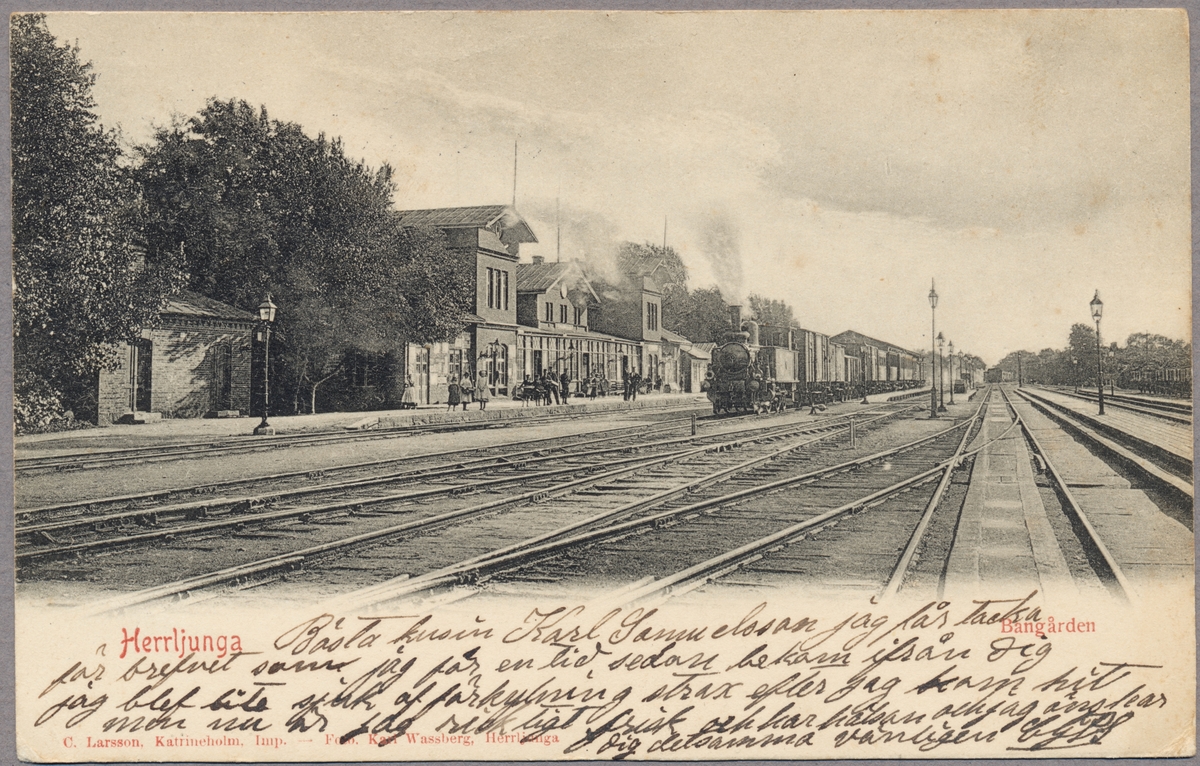 Herrljunga
Bangården
Bästa kusin Karl Samuelsson jag får tacka
för brefvet som jag för en tid sedan bekom ifrån Dig
jag blef lite sjuk af förkylning strax efter jag kom hit
men nu är jag rikligt frisk och har hälsan och jag önskar
Dig detsamma vänligen
C. Larsson, Katrineholm, Imp. — Foto. Karl Wassberg, Herrljunga